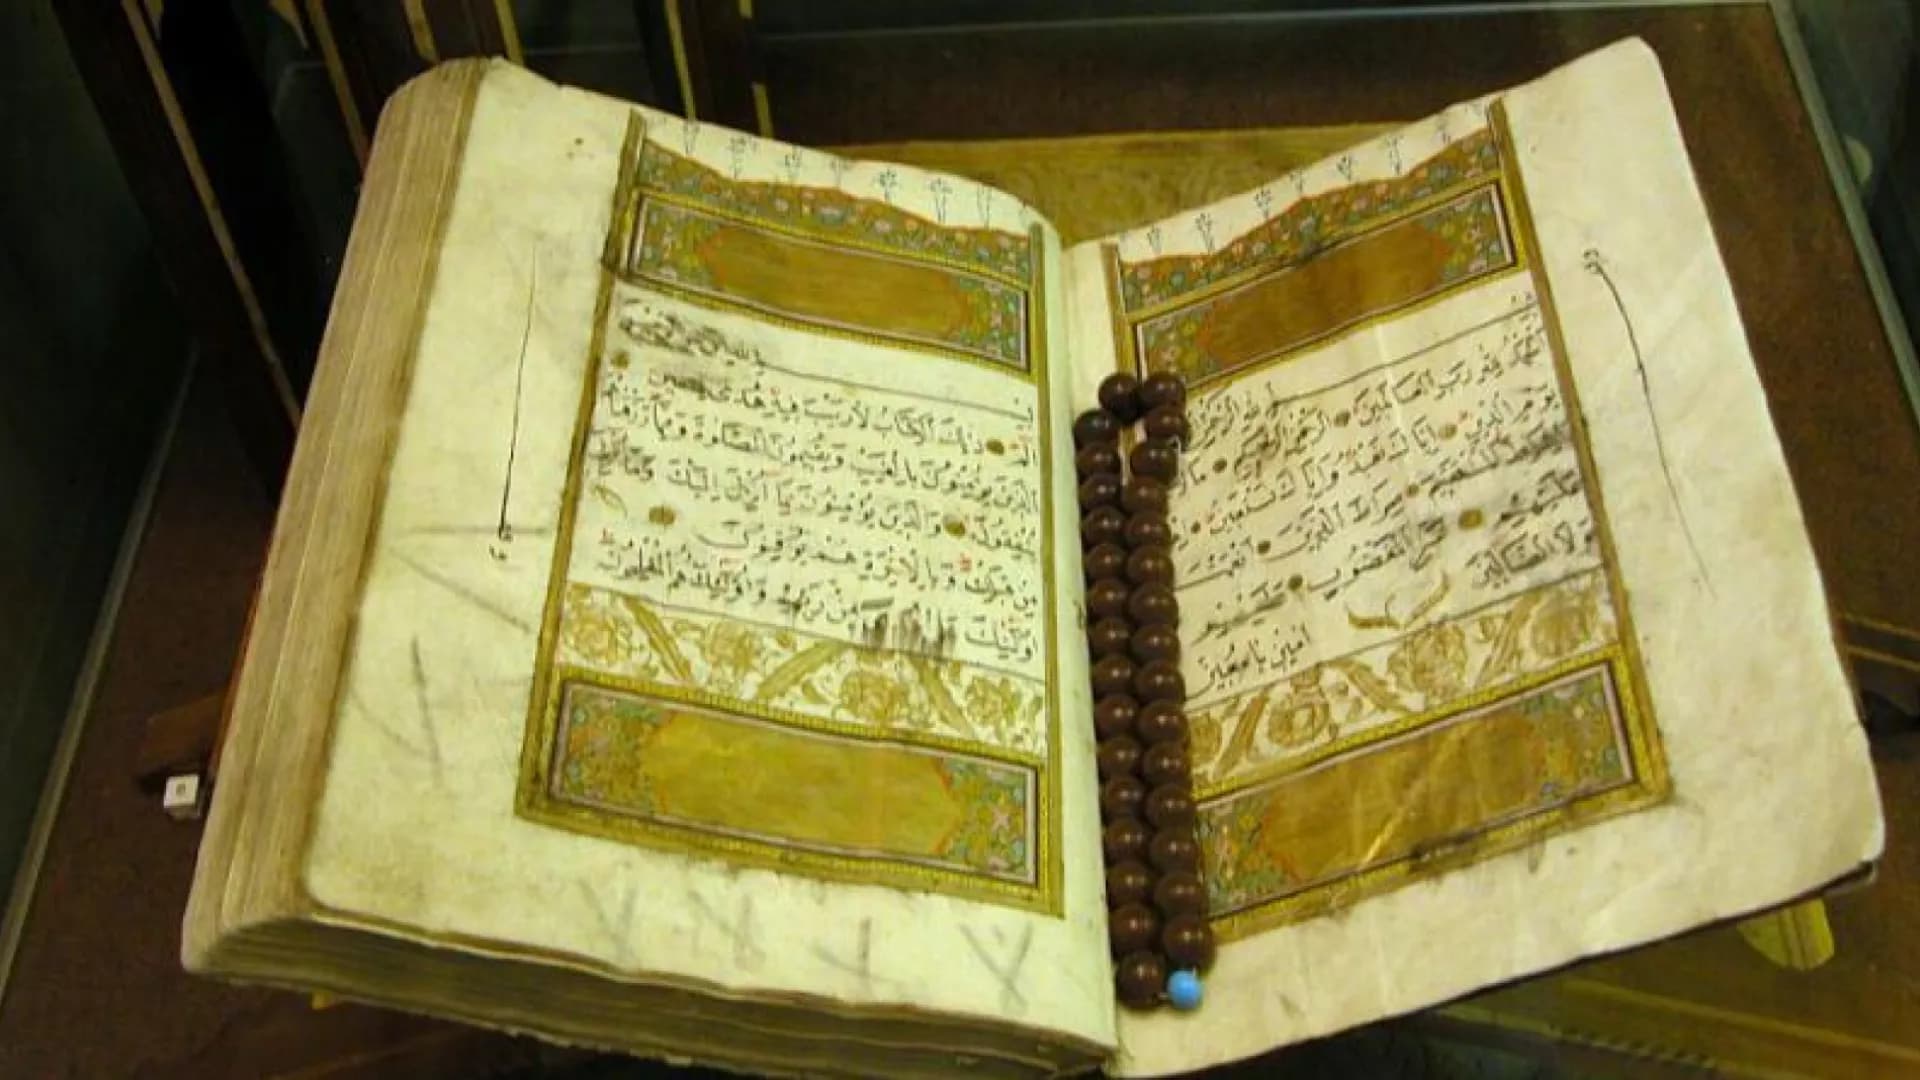 الله الرحمن
الحمد لله رب العالمين الرحمن الرحيم
يوم الدين اياك نعبد واياك نستعين
المستقيم صراط الذين انعمت
عليهم غير المغضوب عليهم
ولا الضالين
امين يا معين
الم ذلك الكتاب لا ريب فيه هدى
الذين يؤمنون بالغيب ويقيمون الصلوة ومما رزقناهم
ينفقون والذين يؤمنون بما انزل اليك وما
من قبلك وبالاخرة هم يوقنون
اولئك من ربهم واولئك هم المفلحون